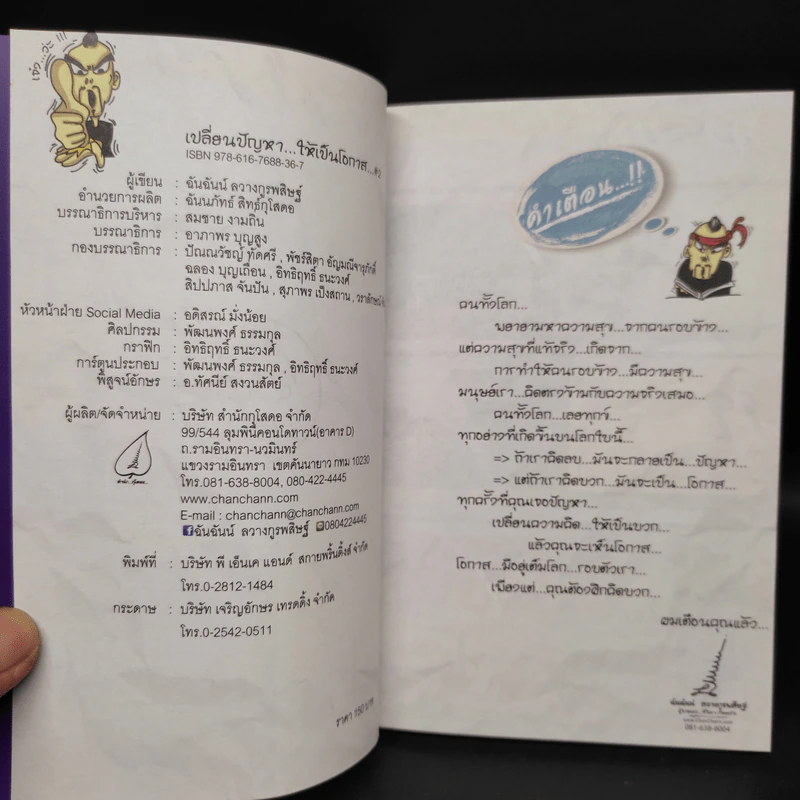 เจ๋ง...ว่ะ !!!
เปลี่ยนปัญหา...ให้เป็นโอกาส...
ISBN 978-616-7688-36-7
ผู้เขียน : ฉันฉันน์ ลวางกูรพสิษฐ์
อำนวยการผลิต : ฉันนภัทธ์ สิทธ์กุโสดอ
บรรณาธิการบริหาร : สมชาย งามถิ่น
บรรณาธิการ : อาภาพร บุญสูง
กองบรรณาธิการ : ปัณณวัชญ์ ทัดศรี , พัชร์สิตา อัญมณีจารุภักดิ์
ฉลอง บุญเถื่อน , อิทธิฤทธิ์ ธนะวงศ์
สิปปภาส จันปัน , สุภาพร เป็งสถาน ,
หัวหน้าฝ่าย Social Media : อดิสรณ์ มั่งน้อย
ศิลปกรรม : พัฒนพงศ์ ธรรมกุล
กราฟิก : อิทธิฤทธิ์ ธนะวงศ์
การ์ตูนประกอบ : พัฒนพงศ์ ธรรมกุล , อิทธิฤทธิ์ ธนะวงศ์
พิสูจน์อักษร : อ.ทัศนีย์ สงวนสัตย์
ผู้ผลิต/จัดจำหน่าย : บริษัท สำนักกุโสดอ จำกัด
99/544 ลุมพินีคอนโดทาวน์(อาคาร D)
ถ.รามอินทรา-นวมินทร์
แขวงรามอินทรา เขตคันนายาว กทม 10230
โทร.081-638-8004, 080-422-4445
www.chanchann.com
E-mail : chanchann@chanchann.com
ฉันฉันน์ ลวางกูรพสิษฐ์ 0804224445
พิมพ์ที่ : บริษัท พี เอ็นเค แอนด์ สกายพริ้นติ้งส์ จำกัด
โทร.0-2812-1484
กระดาษ : บริษัท เจริญอักษร เทรดดิ้ง จำกัด
โทร.0-2542-0511
ราคา 150 บาท
คำเตือน...!!
คนทั้งโลก...
พยายามหาความสุข...จากคนรอบข้าง...
แต่ความสุขที่แท้จริง...เกิดจาก...
การทำให้คนรอบข้าง...มีความสุข...
มนุษย์เรา...คิดตรงข้ามกับความจริงเสมอ...
คนทั้งโลก...เลยทุกข์...
ทุกอย่างที่เกิดขึ้นบนโลกใบนี้...
=> ถ้าเราคิดลบ...มันจะกลายเป็น...ปัญหา...
=> แต่ถ้าเราคิดบวก...มันจะเป็น...โอกาส...
ทุกครั้งที่คุณเจอปัญหา...
เปลี่ยนความคิด...ให้เป็นบวก...
แล้วคุณจะเห็นโอกาส...
โอกาส...มีอยู่เต็มโลก...รอบตัวเรา...
เพียงแต่...คุณต้องฝึกคิดบวก...
ผมเตือนคุณแล้ว...
ฉันฉันน์ ลวางกูรพสิษฐ์
www.ChanChann.com
081-638-8004